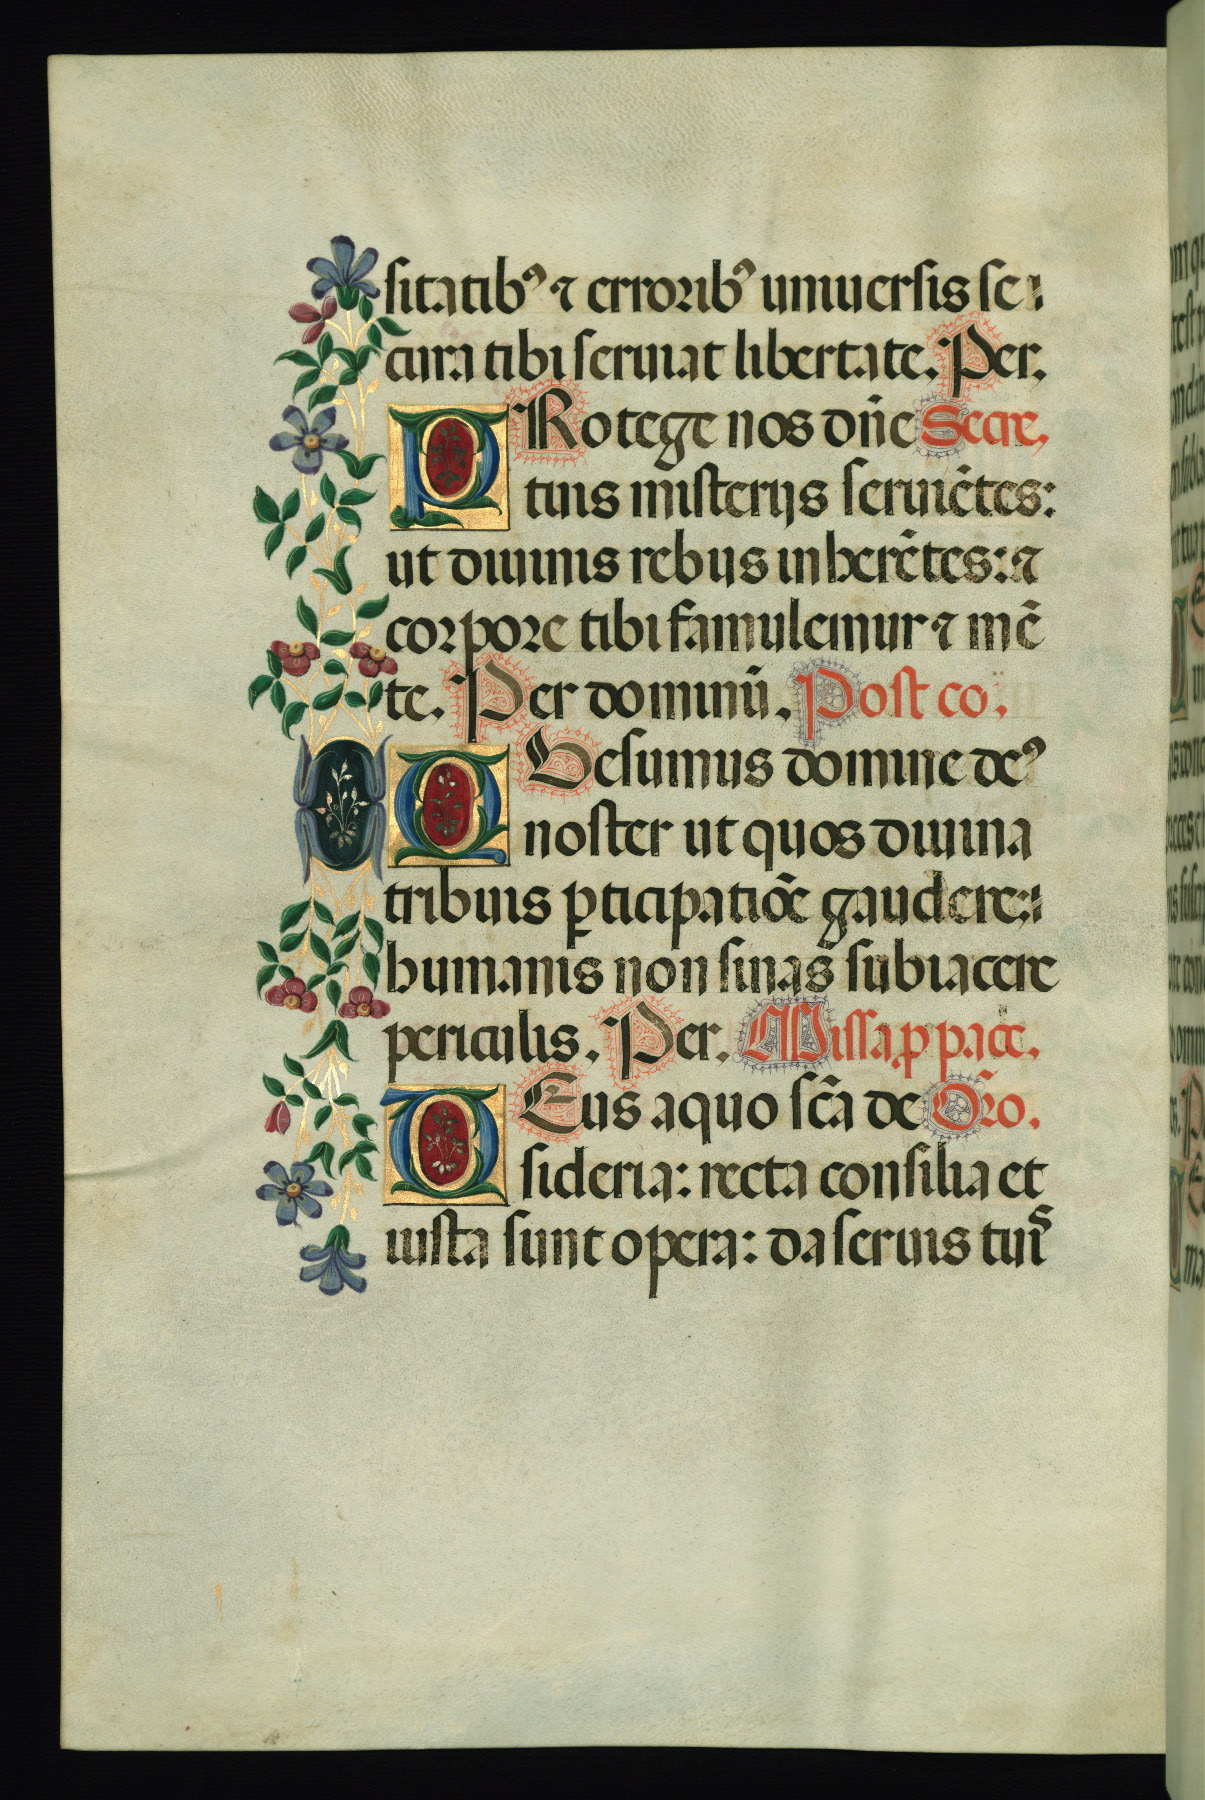 sitatibꝰ ⁊ erroribꝰ uniuersis se
cura tibi seruiat libertate. Per.
PRotege nos dn̄e Secre.
tuis misterijs seruiētes:
ut diuinis rebus inherētes: ⁊
corpore tibi famulemur ⁊ mē
te. Per dominū. Post co.
QUesumus domine deꝰ
noster ut quos diuina
tribuis ꝑticipatiōe gaudere:
humanis non sinas subiacere
periculis. Per. Missa ꝓ pace.
DEus a quo sc̄a de Oro.
sideria: recta consilia et
iusta sunt opera: da seruis tuis